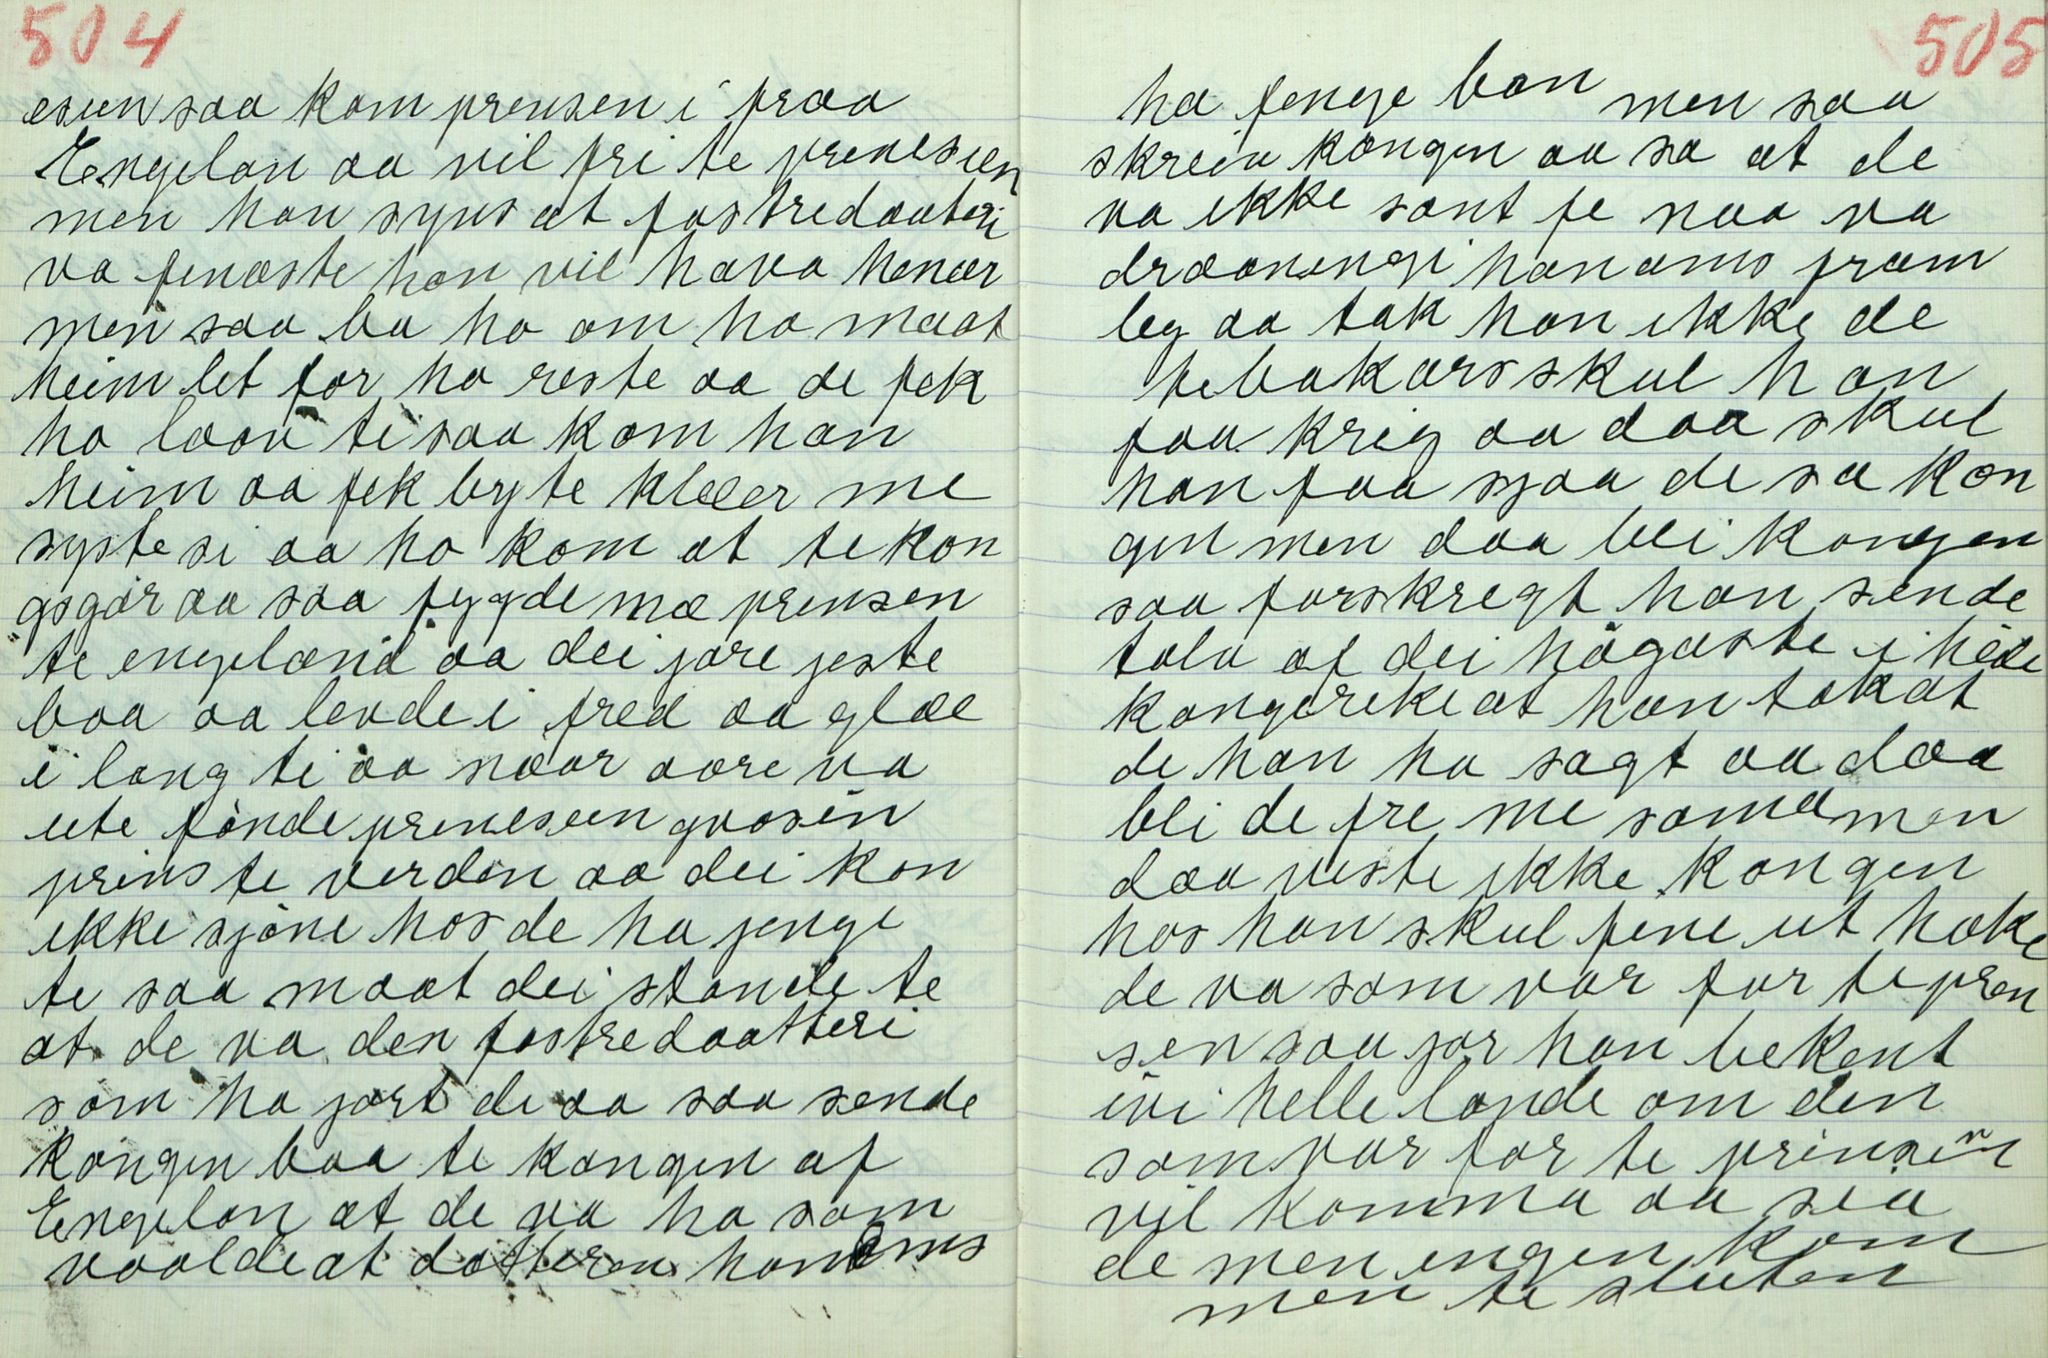 504
esuen saa kom prensen i fraa
Engelan aa vil fri te prenesuen
men han syns at fostredaateri
va fenaste han vil hava henær
men saa ba ho om ho maat
heim let for ho reste aa de fek
ho laav te saa kom han
heim aa fek byte kleer me
syste si aa ho kom at te kon
gsgår aa saa fygde mæ prensen
te engeland aa dei jore jeste
boa aa levde i fred aa glæe
i lang ti aa naar aare va
ute fònde prenesuen gvosèn
prins te verden aa dei kon
ikke sjòne hos de ha jenge
te saa maat dei stande te
at de va den fostredaatteri
som ha jort de aa saa sende
kongen boa te kongen af
Engelan at de va ho som
vaalde at dotteren hanoms
505
ha fenge bon men saa
skreiv kongen aa sa at de
va ikke sant fe naa va
draanengi hanoms fram
leg aa tok han ikke de
tebakars skul han
faa krig aa daa skul
han faa sjaa de sa kon
gen men daa blei kongen
saa forskregt han sende
tolv af dei hògaste i hèile
kongereke at han tok at
de han ha sagt aa daa
bli de fre me somæ men
daa veste ikke kongen
hos han skul fine ut hoke
de va som var for te pren
sen saa jor han bekent
ivi helle lande om den
som var for te prinsen
vil komma aa seia
de men engen kom
men te sluten